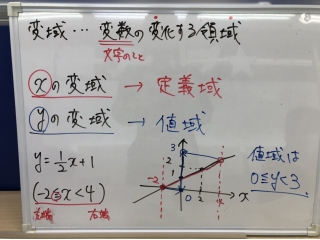 変域… 変数の変化する領域
文字のこと
xの変域 → 定義域
yの変域 → 値域
y=1/2x+1
(-2≦x<4)
左端 右端
y
3
2
1
-2
0
2
4
x
値域は
0≦y<3